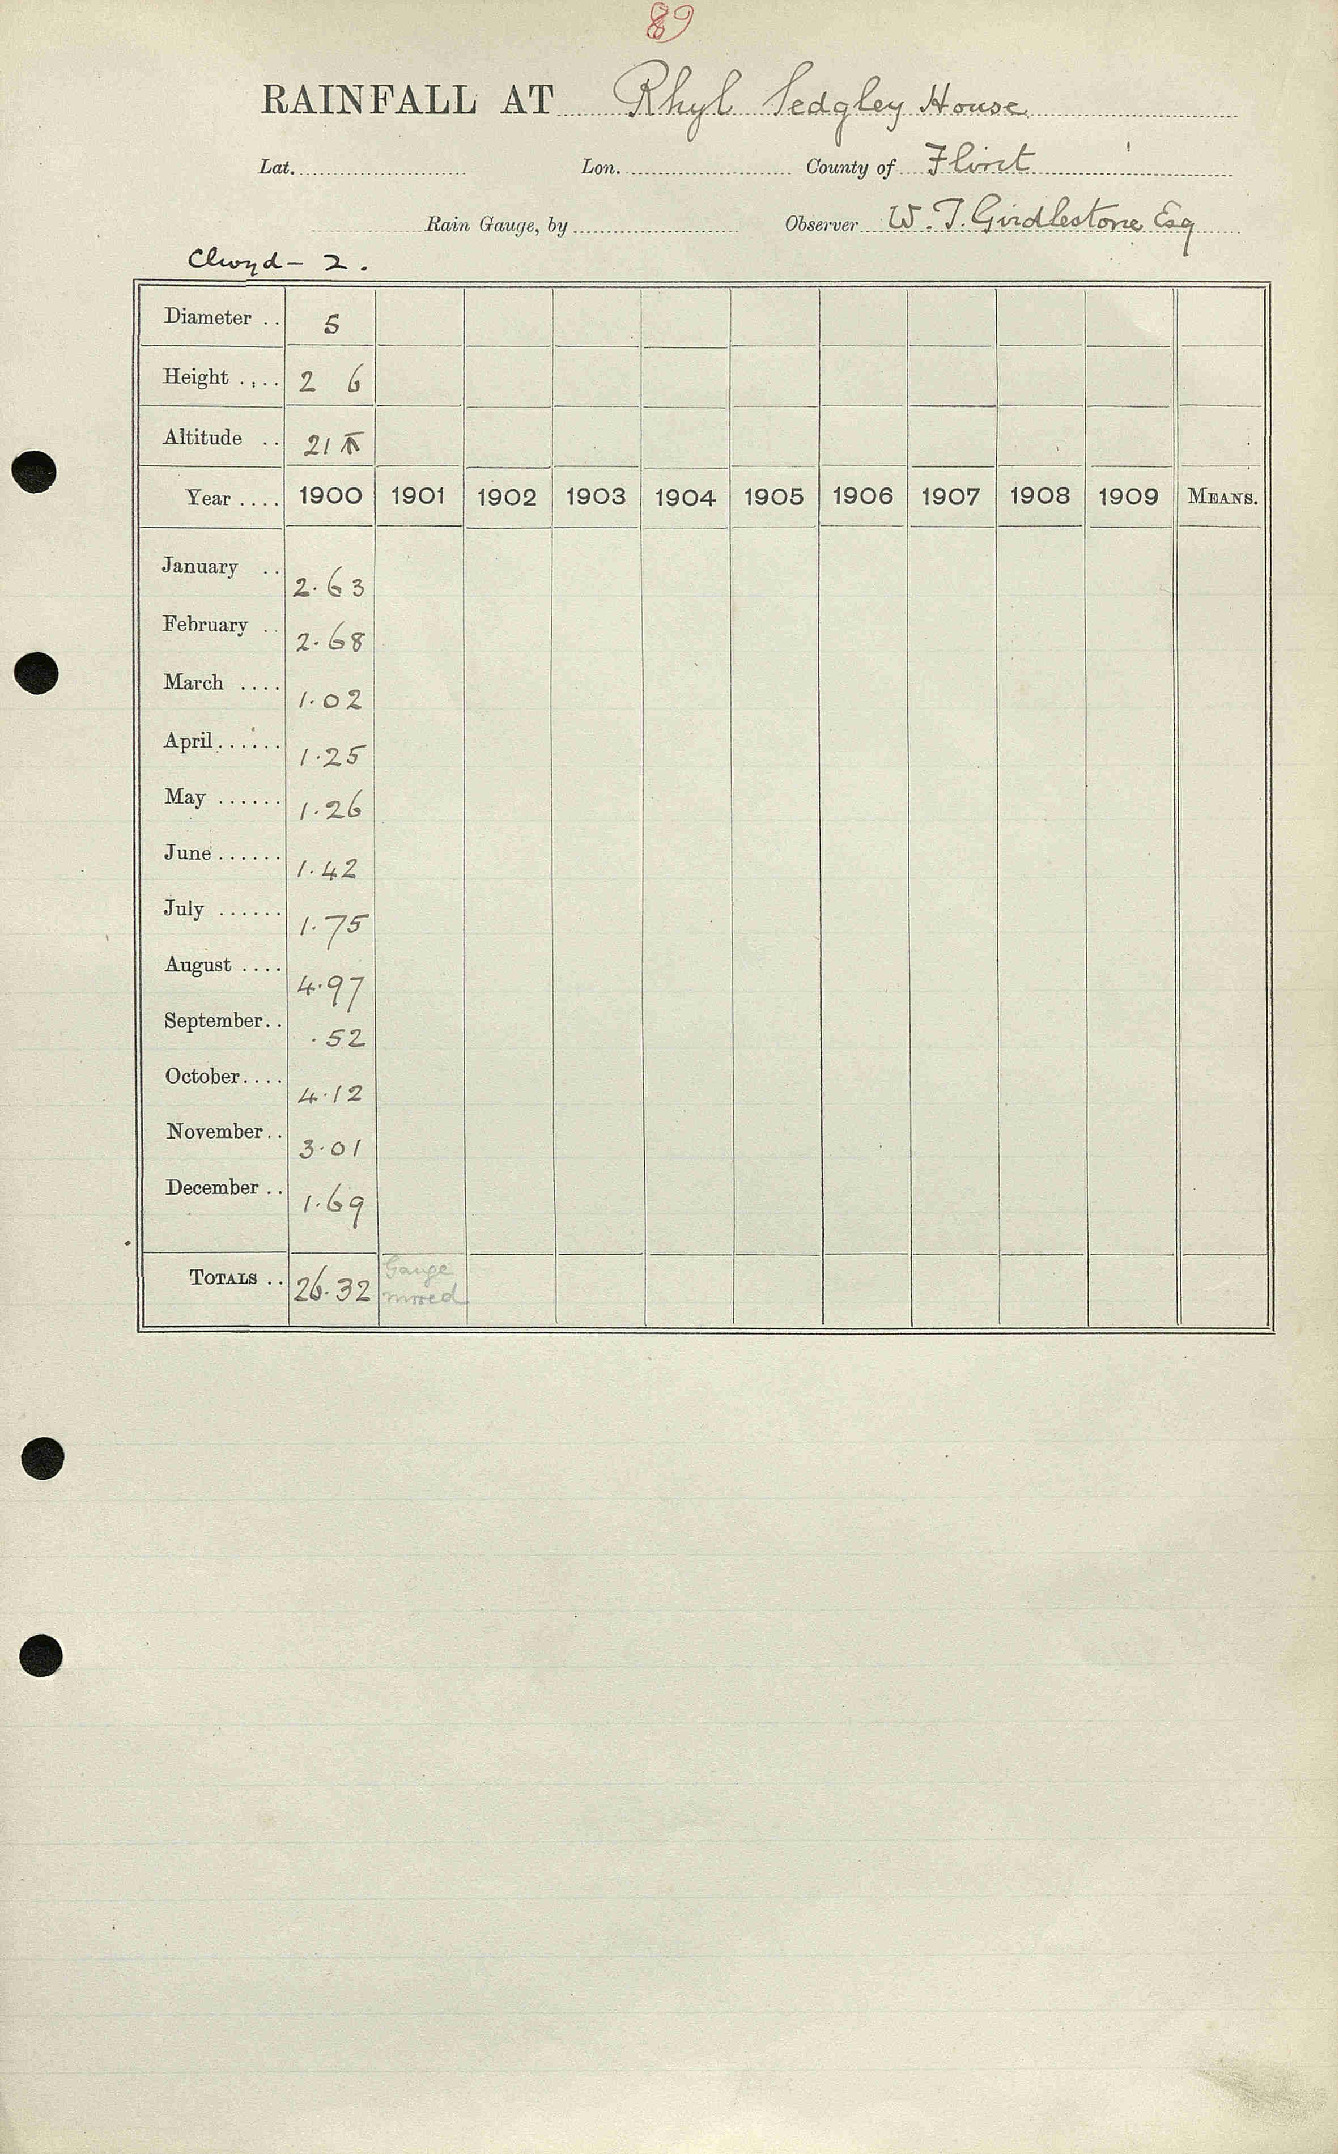 89
RAINFALL AT Rhyl Sedgley House
Lat. Lon. County of Flint
Rain Gauge, by Observer W. T. Girdlestone Esq
Clwyd - 2.
Diameter .. 5
Height .... 2 6
Altitude .. 21
Year .... 1900 1901 1902 1903 1904 1905 1906 1907 1908 1909 MEANS.
January .. 2.63
February .. 2.68
March .... 1.02
April...... 1.25
May ...... 1.26
June...... 1.42
July ...... 1.75
August .... 4.97
September.. .52
October.... 4.12
November.. 3.01
December .. 1.69
TOTALS .. 26.32 Gauge